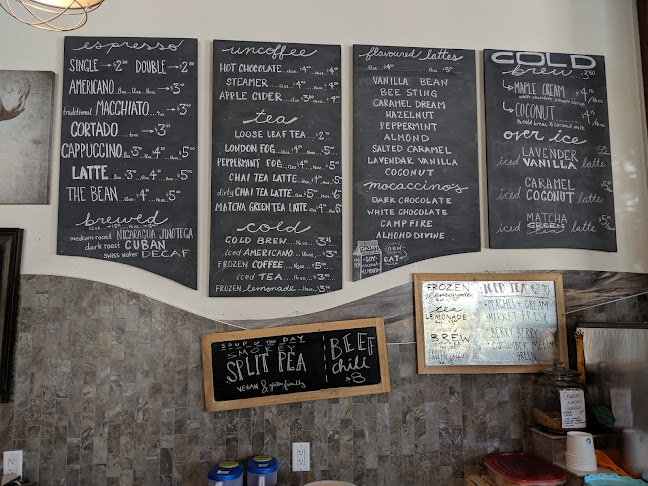 espresso
SINGLE → $2⁰⁰ DOUBLE → $2
AMERICANO → $3
traditional MACCHIATO → $3
CORTADO → $3
CAPPUCCINO $3 $4 $5
LATTE $3 $4 $5
THE BEAN $4 $5
brewed
medium roast NICARAGUA JINOTEGA
dark roast CUBAN
SWISS water DECAF
uncoffee
HOT CHOCOLATE $4 $4
STEAMER $4 $4
APPLE CIDER $3 $4
tea
LOOSE LEAF TEA $2
LONDON FOG $4 $5
PEPPERMINT FOG $4 $5
CHAI TEA LATTE $4 $5
dirty CHAI TEA LATTE $5
MATCHA GREEN TEA LATTE $4 $5
cold
COLD BREW $3
iced AMERICANO $3
FROZEN COFFEE $5
iced TEA $3
FROZEN lemonade
flavoured lattes
VANILLA BEAN
BEE STING
CARAMEL DREAM
HAZELNUT
PEPPERMINT
ALMOND
SALTED CARAMEL
LAVENDAR VANILLA
COCONUT
mocaccino's
DARK CHOCOLATE
WHITE CHOCOLATE
CAMPFIRE
ALMOND DIVINE
DAIRY
SOY
ALMOND
RAW
OAT
COLD
brew
MAPLE CREAM
COCONUT
½ cold brew ½ coconut milk
over ice
LAVENDER
iced VANILLA latte
CARAMEL
iced COCONUT latte
MATCHA
iced GREEN TEA latte
SOUP of the DAY
SMOKEY
SPLIT PEA
VEGAN & gluten friendly
BEEF
chili
$8
FROZEN
lemonade
tea
LEMONADE
BREW
ICED TEA
PEACHES + CREAM
MARKET FRESH
BERRY BERRY
CUCUMBER MELON
GREEN